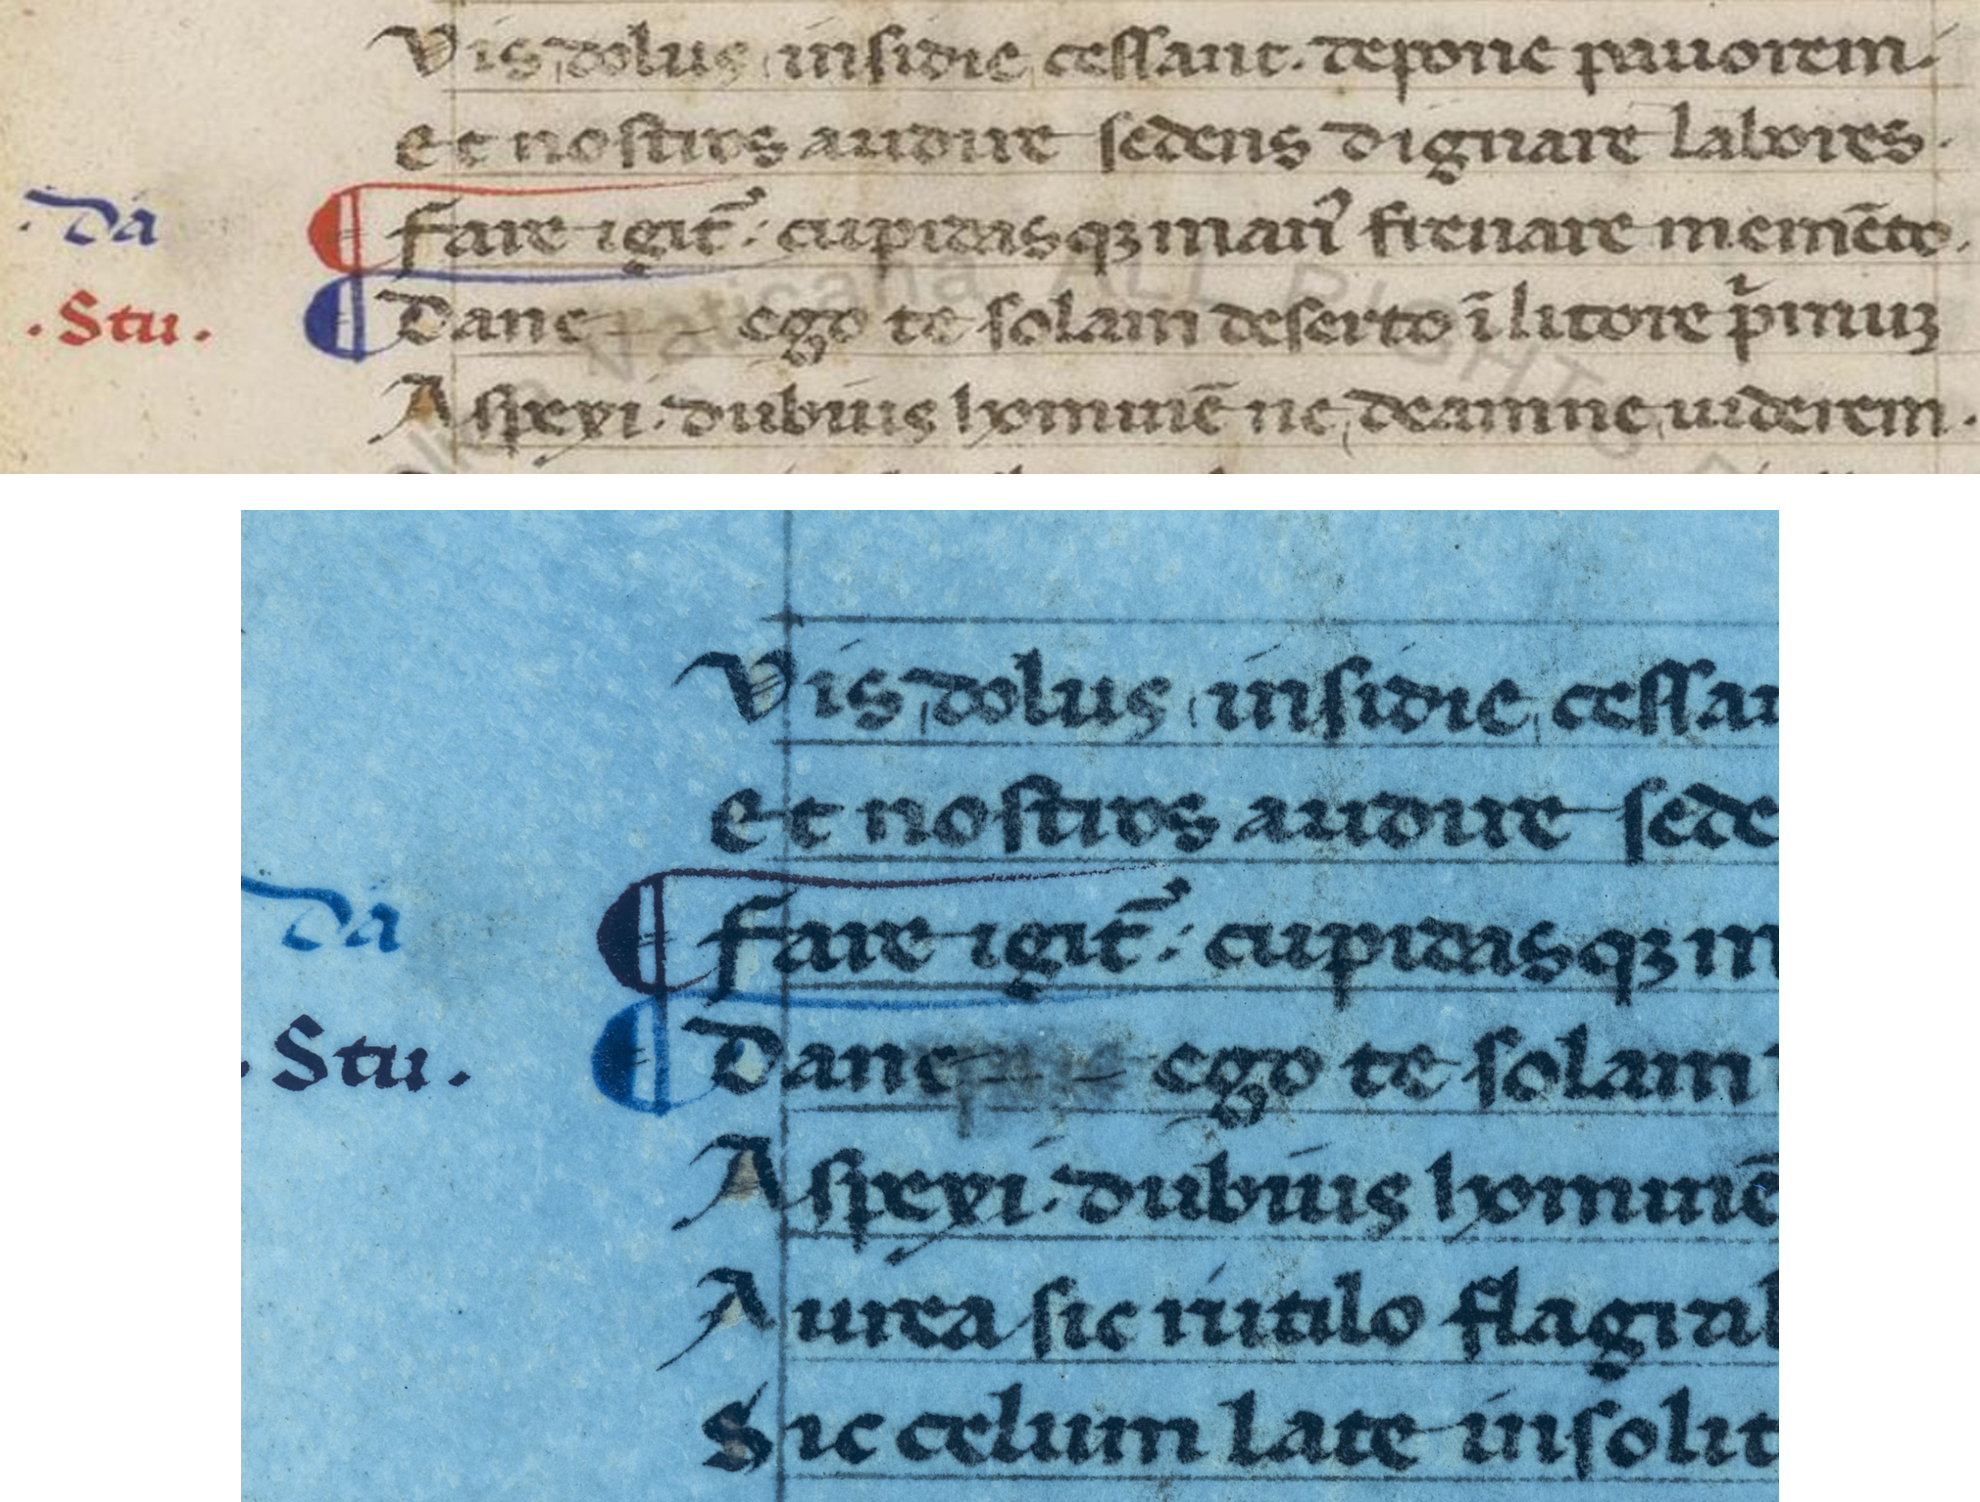 Vis dolus insidie cessant. depone pauorem.
et nostros audire sedens dignare labores.
.Da
Fare igit᷑: cupidasqꝫ man᷒ firmare memēto.
.Stu.
Dane ego te solam deserto ī litore pͥmuꝫ
Aspexi. dubius hominē ne deamne uiderem.
Vaticana ALL RIGHTS
Vis dolus insidie cessan
et nostros audire sede
Da
Fare igit᷑: cupidasqꝫ m
.Stu.
Dane ego te solam
Aspexi. dubius hominē
Aurea sic rutilo flagrab
Sic celum late insolit